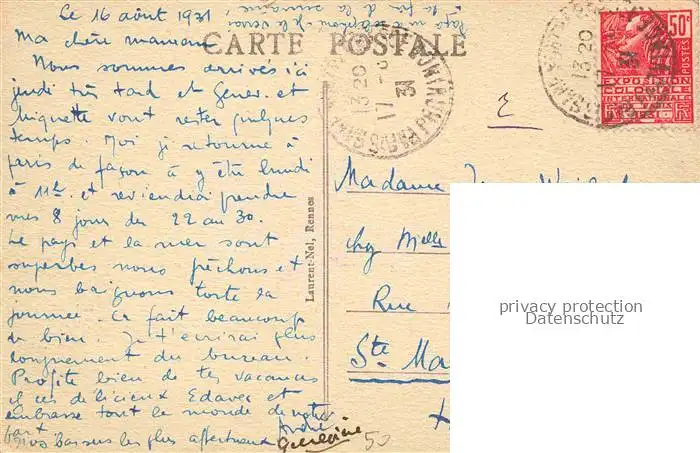 Le 16 août 1931
Ma chère maman
Nous sommes arrivés ici
jeudi très tard et Genev. et
Miquette vont rester quelques
temps. Moi je retourne à
Paris de façon à y être lundi
à 11h. et reviendrai prendre
mes 8 jours du 22 au 30.
Le pays et la mer sont
superbes nous pêchons et
nous baignons toute la
journée. Ca fait beaucoup
de bien. Je t'écrirai plus
longuement du bureau.
Profite bien de tes vacances
embrasse tout le monde de notre
part
baisers les plus affectueux
André
Geneviève
CARTE POSTALE
Laurent-Nel, Rennes
13 20
17 -8
31
13 20
50c
POSTES
EXPOSITION
COLONIALE
INTERNATIONALE
Madame
chez Melle
Rue
Ste Ma
50
privacy protection
Datenschutz